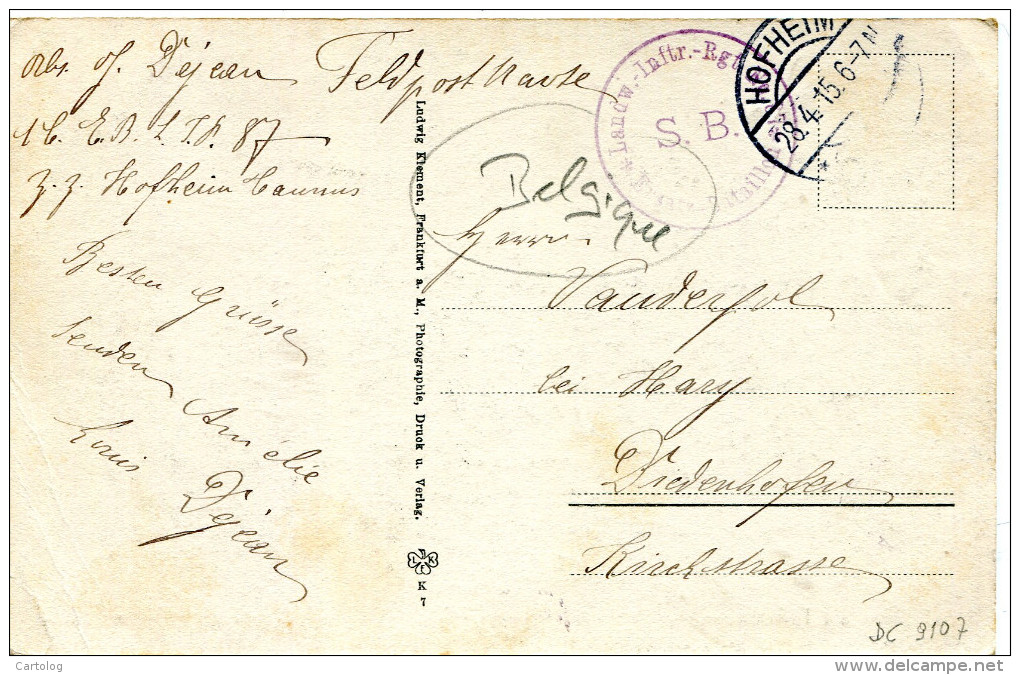 Abs. J. Déjean Feldpostkarte
1 C. E. B. L. I. R. 87
z. z. Hofheim Taunus
Besten Grüsse
senden Amélie
Louis Déjean
Ludwig Klement, Frankfurt a. M., Photographie, Druck u. Verlag.
L K
K 7
Landw.-Inftr.-Rgt
S. B.
HOFHEIM
28.4.15. 6-7N
Belgique
Herrn
Vanderpol
bei Hary
Diedenhofen
Kirchstrasse
DC 9107
Cartolog
www.delcampe.net